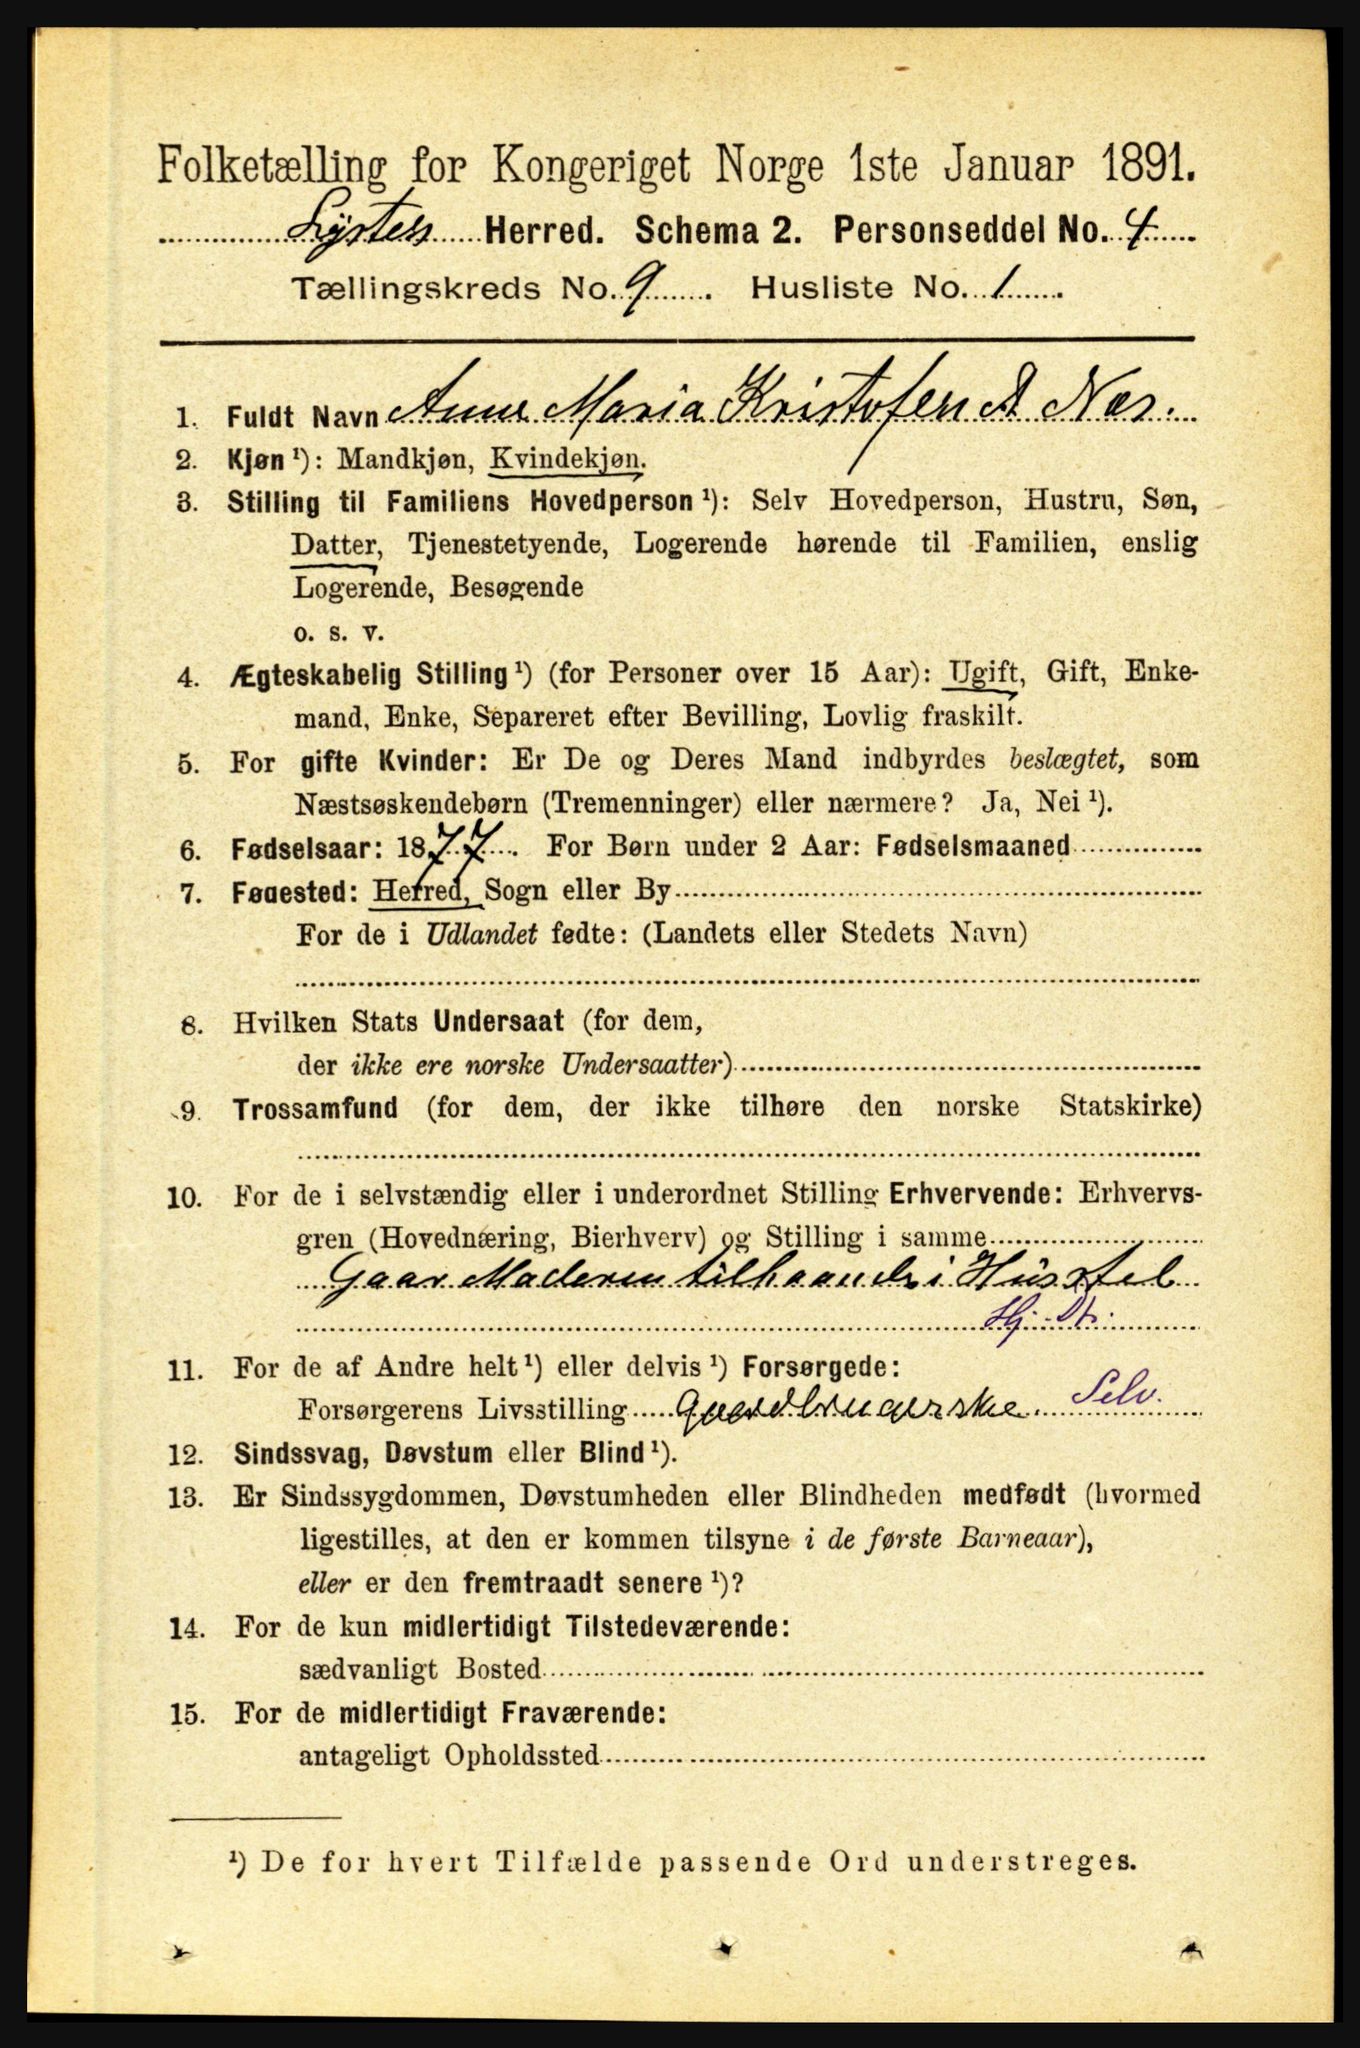 Folketælling for Kongeriget Norge 1ste Januar 1891.
Lyster Herred. Schema 2. Personseddel No. 4
Tællingskreds No. 9 . Husliste No. 1 .
1. Fuldt Navn Anne Maria Kristofen D Næs.
2. Kjøn ¹): Mandkjøn, Kvindekjøn.
3. Stilling til Familiens Hovedperson ¹): Selv Hovedperson, Hustru, Søn,
Datter, Tjenestetyende, Logerende hørende til Familien, enslig
Logerende, Besøgende
o. s. v.
4. Ægteskabelig Stilling ¹) (for Personer over 15 Aar): Ugift, Gift, Enke-
mand, Enke, Separeret efter Bevilling, Lovlig fraskilt.
5. For gifte Kvinder: Er De og Deres Mand indbyrdes beslægtet, som
Næstsøskendebørn (Tremenninger) eller nærmere? Ja, Nei ¹).
6. Fødselsaar: 1877. For Børn under 2 Aar: Fødselsmaaned
7. Fødested: Herred, Sogn eller By
For de i Udlandet fødte: (Landets eller Stedets Navn)
8. Hvilken Stats Undersaat (for dem,
der ikke ere norske Undersaatter)
9. Trossamfund (for dem, der ikke tilhøre den norske Statskirke)
10. For de i selvstændig eller i underordnet Stilling Erhvervende: Erhvervs-
gren (Hovednæring, Bierhverv) og Stilling i samme
Gaar Moderen tilhaande i Husstel
Hj. Dt.
11. For de af Andre helt ¹) eller delvis ¹) Forsørgede:
Forsørgerens Livsstilling Gaardbrugerske Selv.
12. Sindssvag, Døvstum eller Blind ¹).
13. Er Sindssygdommen, Døvstumheden eller Blindheden medfødt (hvormed
ligestilles, at den er kommen tilsyne i de første Barneaar),
eller er den fremtraadt senere ¹)?
14. For de kun midlertidigt Tilstedeværende:
sædvanligt Bosted
15. For de midlertidigt Fraværende:
antageligt Opholdssted
¹) De for hvert Tilfælde passende Ord understreges.